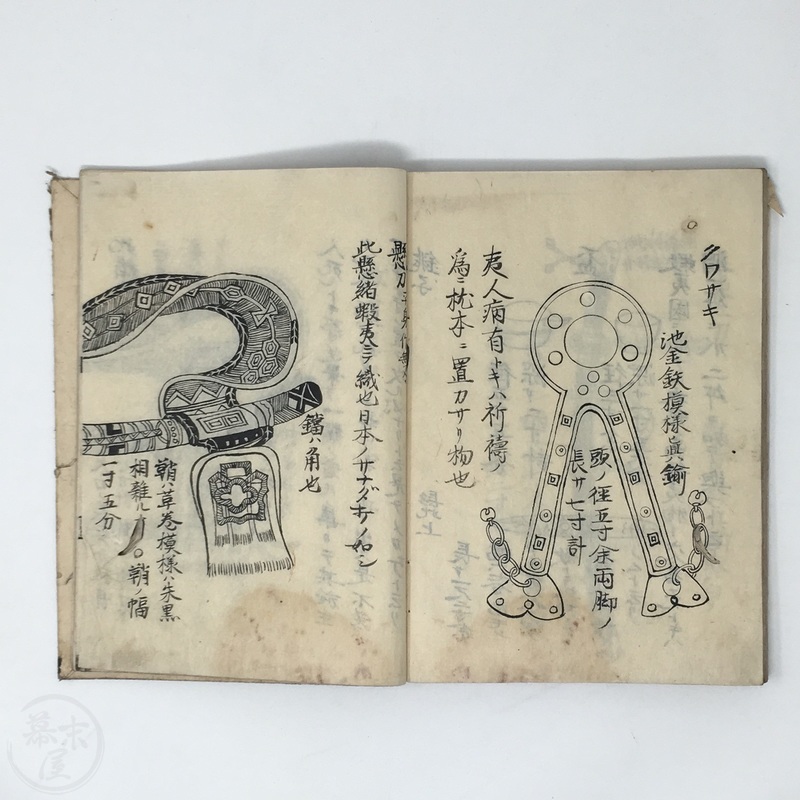 クワサキ
池金鉄模様真鍮
頭ノ径五寸余両脚ノ
長サ七寸計
夷人病有トキハ祈祷ノ
為ニ枕本ニ置カサリ物也
此懸緒蝦夷ニテ織也日本ノサナダヲノ如シ
鐺ハ角也
鞘ハ草巻模様ハ朱黒
相雑ル
鞘ノ幅
一寸五分
幕末屋